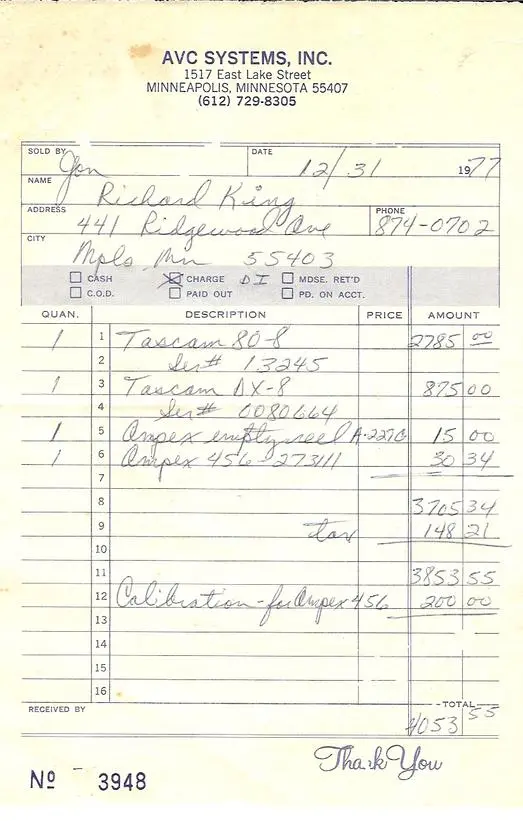 AVC SYSTEMS, INC.
1517 East Lake Street
MINNEAPOLIS, MINNESOTA 55407
(612) 729-8305
SOLD BY Jon DATE 12/31 1977
NAME Richard King
ADDRESS 441 Ridgewood Ave PHONE 874-0702
CITY Mpls Mn 55403
CASH CHARGE DI MDSE. RET'D
C.O.D. PAID OUT PD. ON ACCT.
QUAN. DESCRIPTION PRICE AMOUNT
1 1 Tascam 80-8 2785 00
2 Ser# 13245
1 3 Tascam DX-8 875 00
4 Ser# 0080664
1 5 Ampex empty reel 15 00
1 6 Ampex 456-273111 30 34
7
8 3705 34
9 tax 148 21
10
11 3853 55
12 Calibration-for Ampex 456 200 00
13
14
15
16
RECEIVED BY TOTAL 4053 55
Thank You
Nº 3948